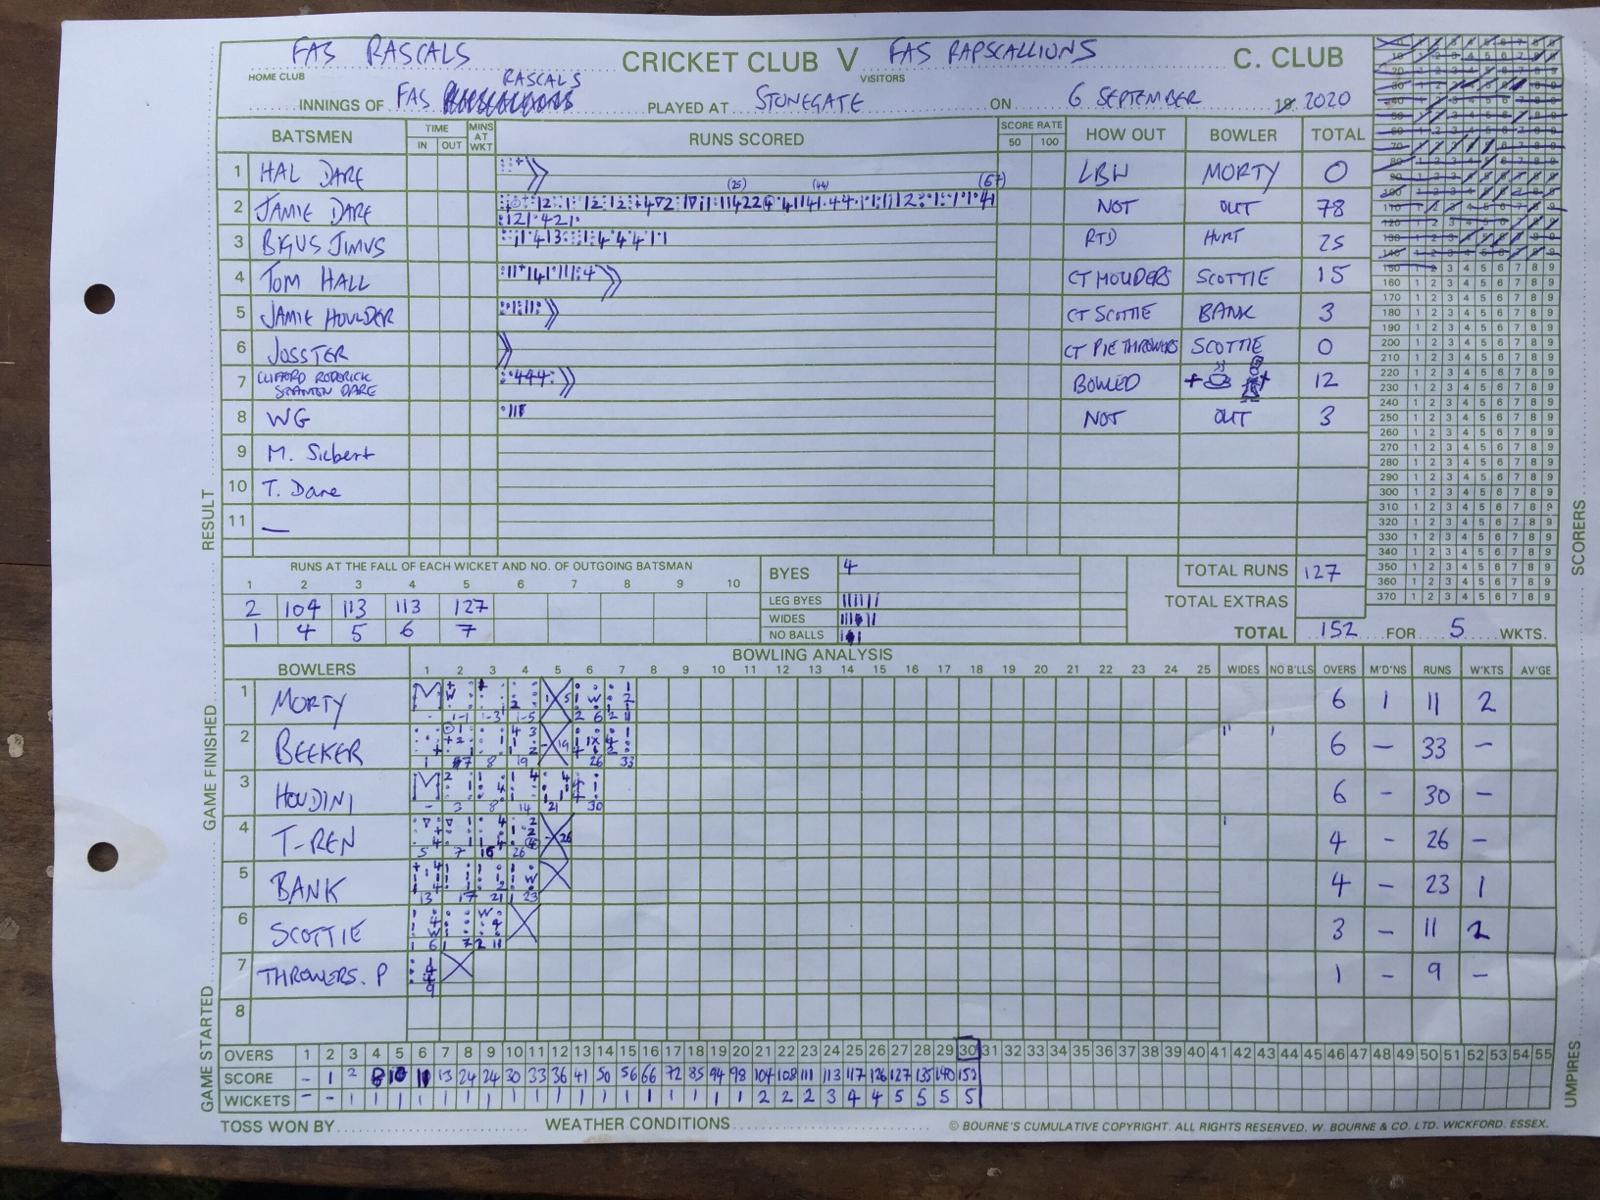 FAS RASCALS CRICKET CLUB V FAS RAPSCALLIONS C. CLUB
HOME CLUB VISITORS
RASCALS
INNINGS OF FAS PLAYED AT STONEGATE ON 6 SEPTEMBER 19 2020
BATSMEN TIME IN OUT MINS AT WKT RUNS SCORED SCORE RATE 50 100 HOW OUT BOWLER TOTAL
1 HAL DARE LBW MORTY 0
(25) (44) (67)
2 JAMIE DARE NOT OUT 78
3 BIGUS JIMUS RTD HURT 25
4 TOM HALL CT HOULDERS SCOTTIE 15
5 JAMIE HOULDER CT SCOTTIE BANK 3
6 JOSSTER CT PIE THROWERS SCOTTIE 0
7 CLIFFORD RODERICK STANTON DARE BOWLED 12
8 WG NOT OUT 3
9 M. Siebert
10 T. Dare
11 —
RUNS AT THE FALL OF EACH WICKET AND NO. OF OUTGOING BATSMAN
1 2 3 4 5 6 7 8 9 10
2 104 113 113 127
1 4 5 6 7
BYES 4
LEG BYES
WIDES
NO BALLS
TOTAL RUNS 127
TOTAL EXTRAS
TOTAL 152 FOR 5 WKTS.
BOWLING ANALYSIS
BOWLERS 1 2 3 4 5 6 7 8 9 10 11 12 13 14 15 16 17 18 19 20 21 22 23 24 25 WIDES NO B'LLS OVERS M'D'NS RUNS W'KTS AV'GE
1 MORTY 6 1 11 2
2 BEEKER 6 — 33 —
3 HOUDINI 6 — 30 —
4 T-REN 4 — 26 —
5 BANK 4 — 23 1
6 SCOTTIE 3 — 11 2
7 THROWERS. P 1 — 9 —
8
OVERS 1 2 3 4 5 6 7 8 9 10 11 12 13 14 15 16 17 18 19 20 21 22 23 24 25 26 27 28 29 30 31 32 33 34 35 36 37 38 39 40 41 42 43 44 45 46 47 48 49 50 51 52 53 54 55
SCORE - 1 2 8 10 11 13 24 24 30 33 36 41 50 56 66 72 85 94 98 104 108 111 113 117 126 127 135 140 152
WICKETS - - 1 1 1 1 1 1 1 1 1 1 1 1 1 1 1 1 1 1 2 2 2 3 4 4 5 5 5 5
TOSS WON BY WEATHER CONDITIONS © BOURNE'S CUMULATIVE COPYRIGHT. ALL RIGHTS RESERVED. W. BOURNE & CO. LTD. WICKFORD. ESSEX.
RESULT
GAME FINISHED
GAME STARTED
SCORERS
UMPIRES